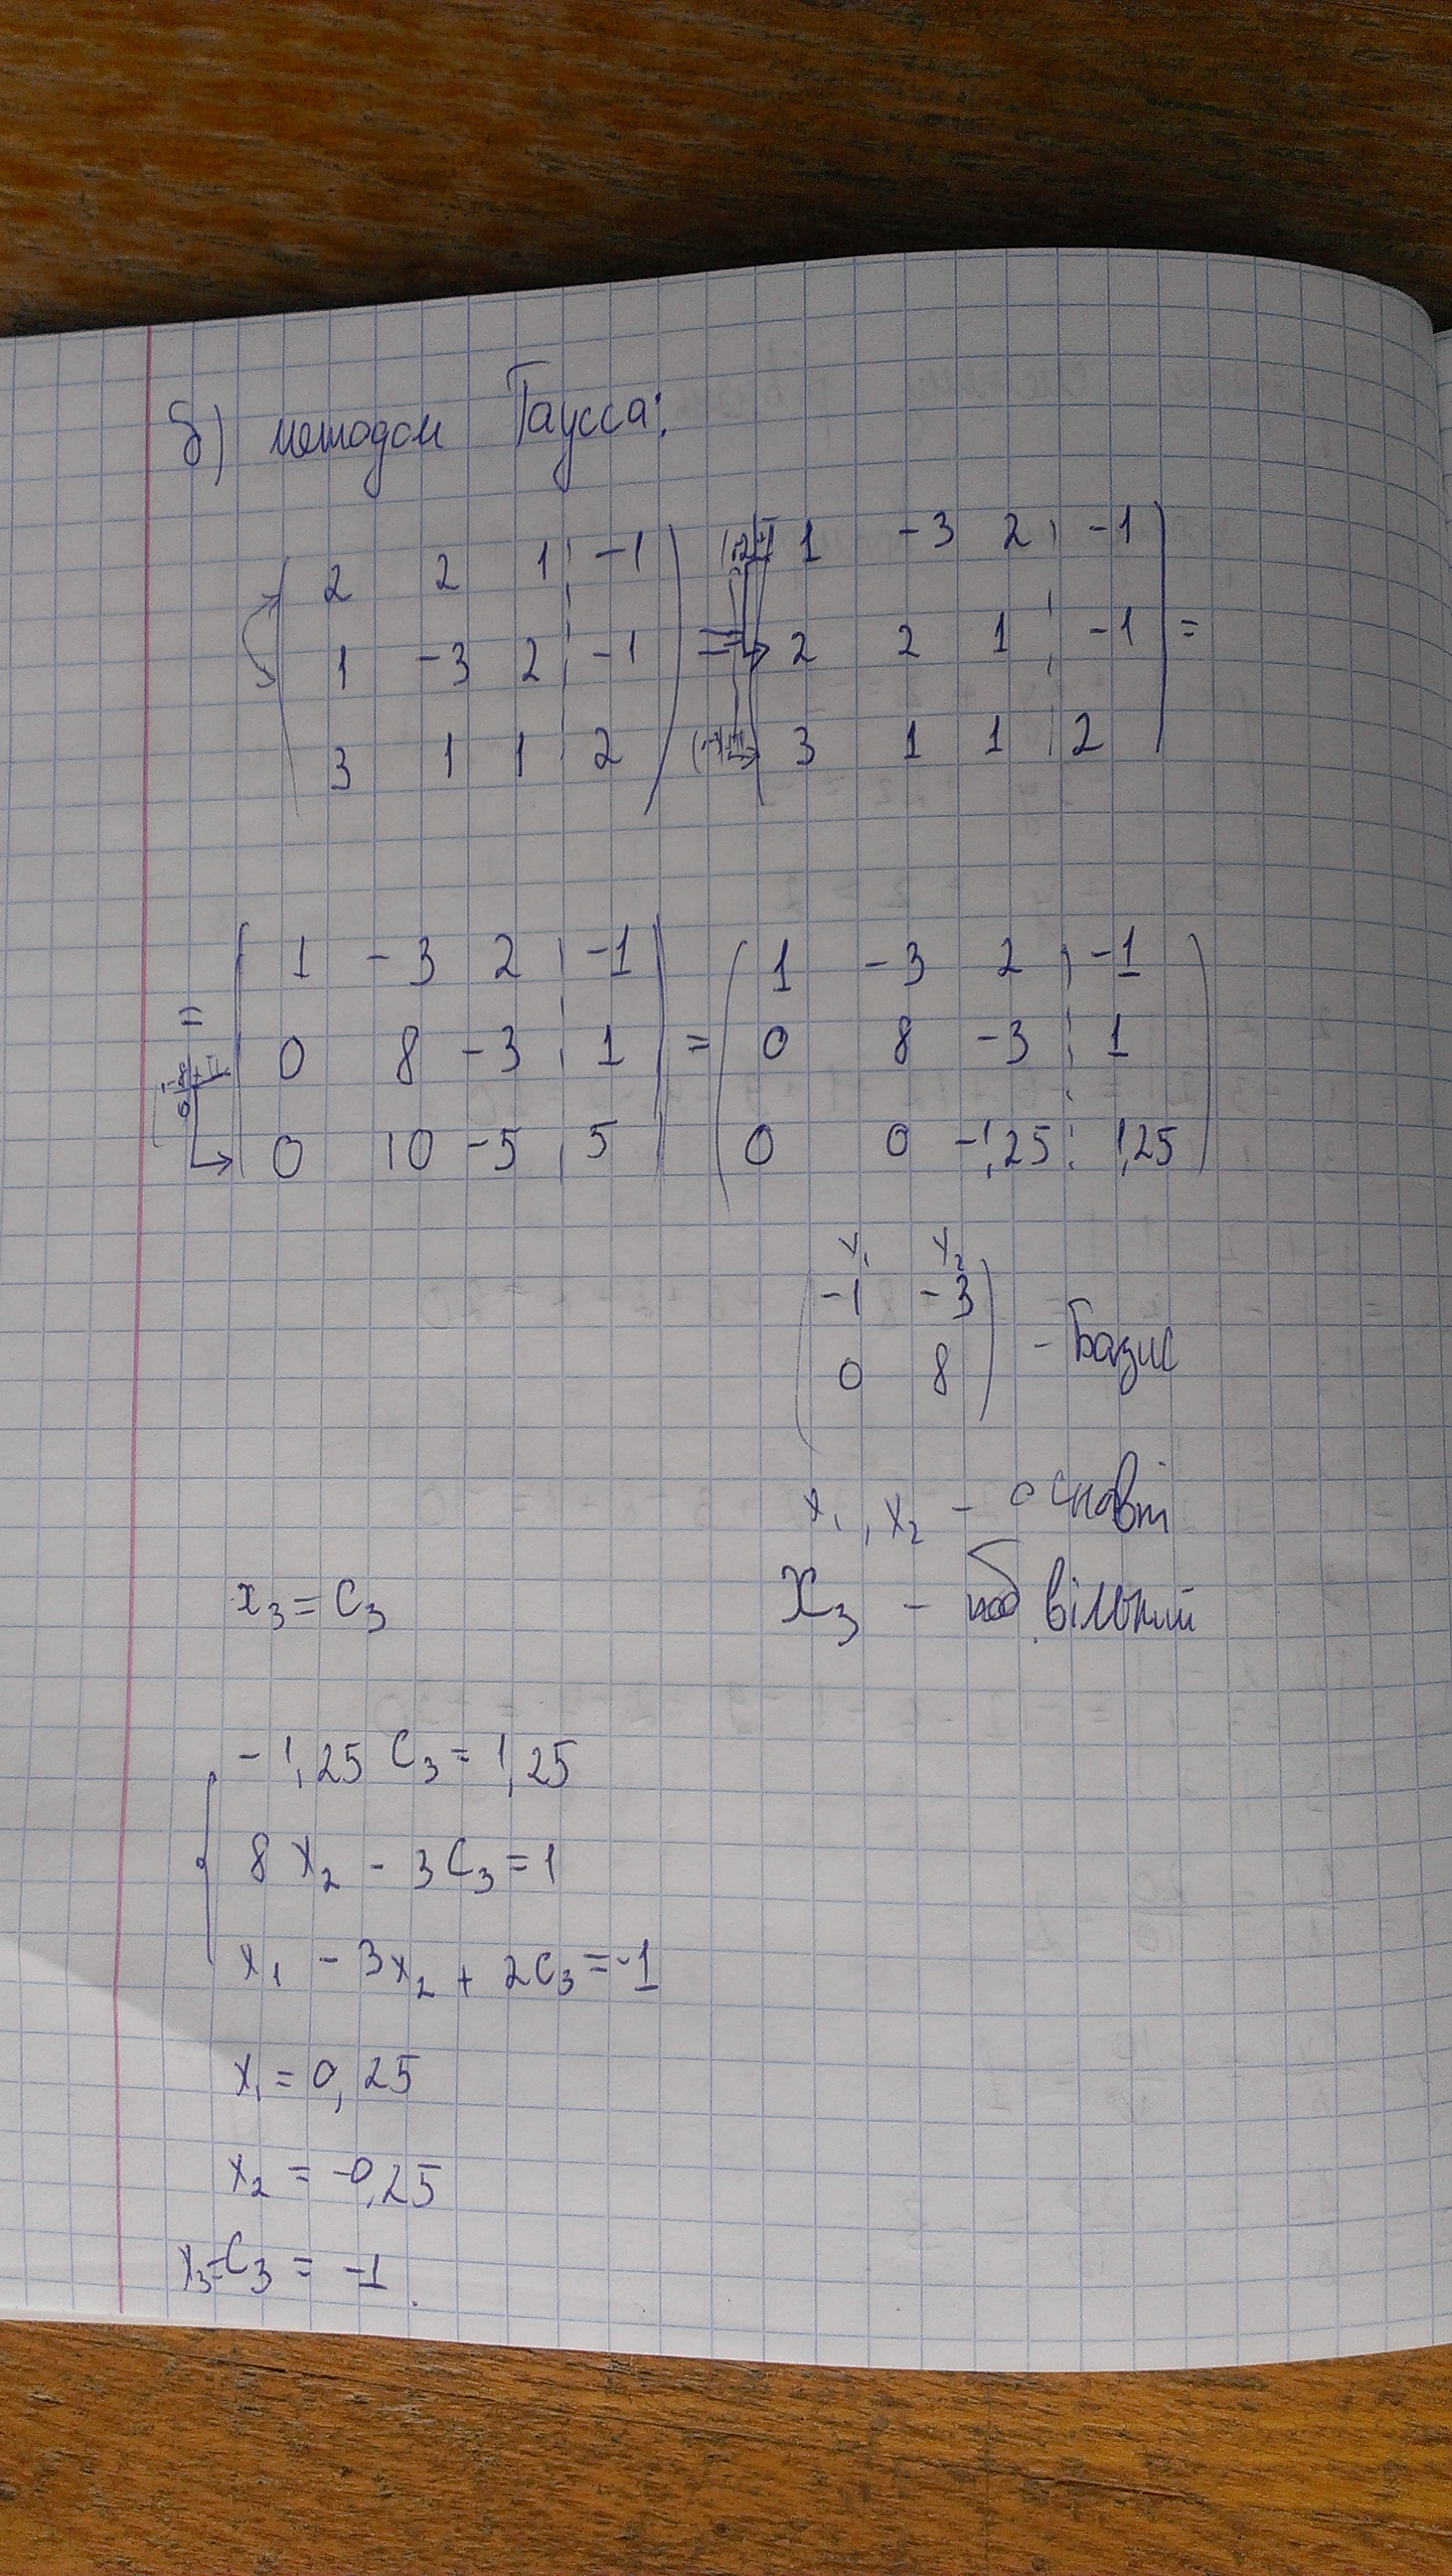 б) методом Гаусса:
2 2 1 | -1
1 -3 2 | -1
3 1 1 | 2
=
1 -3 2 | -1
2 2 1 | -1
3 1 1 | 2
=
=
1 -3 2 | -1
0 8 -3 | 1
0 10 -5 | 5
=
1 -3 2 | -1
0 8 -3 | 1
0 0 -1,25 | 1,25
x₁ x₂
-1 -3
0 8
- Базис
x₁, x₂ -
x₃ = C₃
x₃ - вільний
-1,25 C₃ = 1,25
8 x₂ - 3 C₃ = 1
x₁ - 3x₂ + 2C₃ = -1
x₁ = 0,25
x₂ = -0,25
x₃ = C₃ = -1.